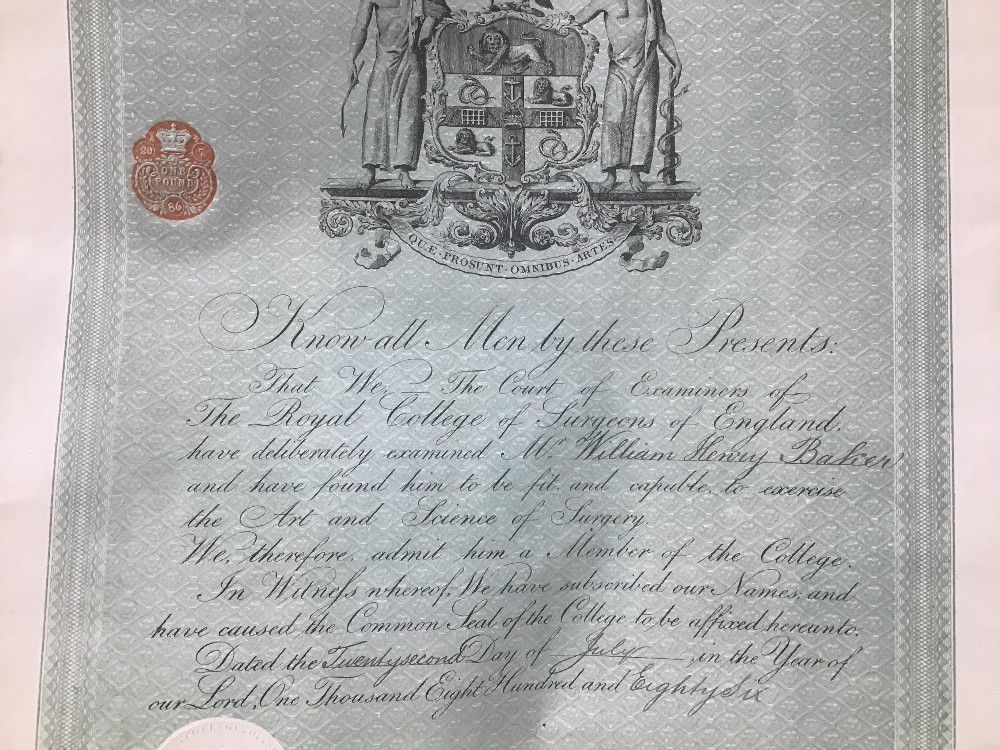 QUÆ · PROSUNT · OMNIBUS · ARTES
29
ONE
POUND
86
Know all Men by these Presents:
That We, The Court of Examiners of
The Royal College of Surgeons of England.
have deliberately examined Mr. William Henry Baker
and have found him to be fit and capable to exercise
the Art and Science of Surgery.
We, therefore, admit him a Member of the College.
In Witneſs whereof, We have subscribed our Names, and
have caused the Common Seal of the College to be affixed hereunto.
Dated the Twentysecond Day of July, in the Year of
our Lord, One Thousand Eight Hundred and Eighty Six